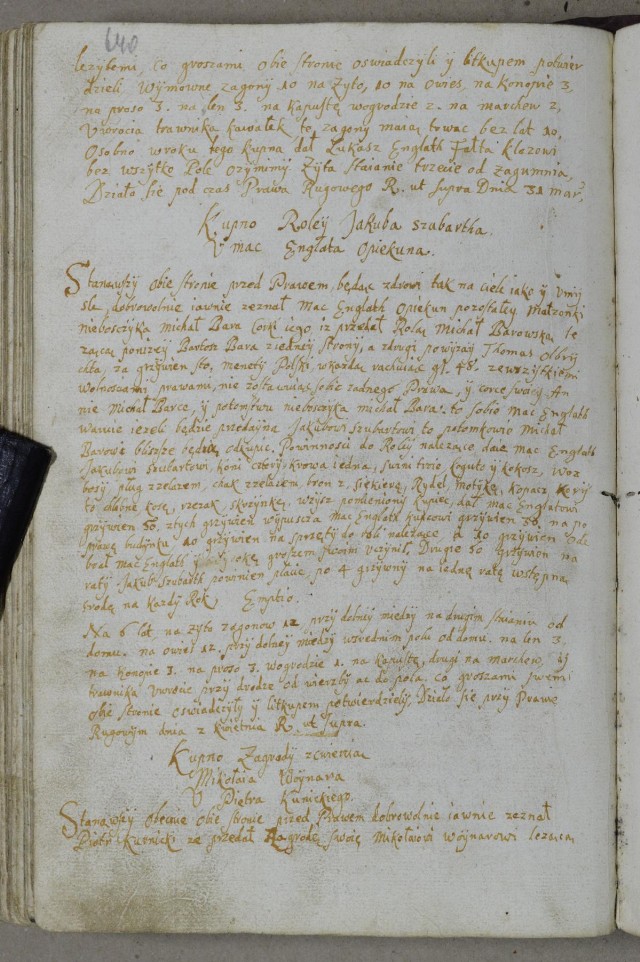 640
leżyłemi, co groszami obie stronie oswiadczyli y litkupem potwier
dzieli. Wymowne zagony 10 na żyto, 10 na owies, na konopie 3,
na proso 3. na len 3. na kapustę wogrodzie 2. na marchew 2,
Uwrocia trawnika kawałek te zagony maią trwac bez lat 10.
Osobno wroku tego kupna dał Lukasz Englath Falta
bez wszytko Pole ozyminy Zyta staianie trzecie od zagumnia,
Działo się pod czas Prawa Rugowego R. ut supra Dnia 31 mar:
Kupno Roley Jakuba Szubartha.
V mac Englata Opiekuna.
Stanąwszy obie stronie przed Prawem będąc zdrowi tak na ciele iako y Vmy
sle, dobrowolnie iawnie zeznał Mac Englath Opiekun pozostałey Małzonki
nieboszczyka Michał Bara corki iego, iz przedał Rolą Michał Barowską le
zącą poniżey Bartosz Bara ziedney strony, a zdrugi powyzay Thomas Olbry
chta, za grzywien sto, monety Polski, wkażdą rachuiąc gł. 48. zewszytkiemi
wolnosciami prawami, nie zostawuiąc sobie zadnego Prawa, y corce swoicy An
nie Michał Barce, y potomstwu nieboszczyka michał Bara. to sobie Mac Englath
waruie iezeli będzie przedayna Jakubowi Szubartowi to potomkowie Michał
Barowe bliższe będą odkupic. Powinnosci do Roley należące daie Mac Englath
Jakubowi Szubartowi, koni cztery, krowa iedna, swini troie, koguto y kokosz, woz
bosy, pług zzelazem, zzelazem, bron 2, siekierę, Rydel, Motykę, kopacz
to kosę, rzezak, skrzynkę. wzysz pomieniony kupiec, dał mac Englatowi
grzywien 50. ztych grzywien wypuszcza Mac Englath kupcowi grzywien 30. na po
prawę budynku 10 grzywien na sprzęty do roli należące, a 10 grzywien ode
brał Mac Englath y groszem swoim vczynił. Drugie 50 grzywien na
raty Jakub Szubarth powinien płacic, po 4 grzywny na iednę ratę wstępną
srodę na kazdy Rok Emptio.
Na 6 lat na zyto zagonow 12 przy dolney miedzy nadrugim staianiu od
domu. na owies 12. przy dolney miedzy wsrednim polu od domu. na len 3,
na konopie 3. na proso 3. wogrodzie 1. na kapustę, drugi na marchew, y
trawnika Vwrocie przy drodze od wierzby az do pola. co groszami swemi
obie stronie oswiadczyły y litkupem potwierdzieli, Działo się przy Prawie
Rugowym dnia 2 kwietnia R. ut supra.
Kupno Zagrody
Mikołaia Woynara
V Piotra Kunickiego.
Stanąwszy obecnie obie stronie przed Prawem dobrowolnie iawnie zeznał
Piotr Kunicki ze przedał Zagrodę swoię Mikołaiowi Woynarowi lezącą